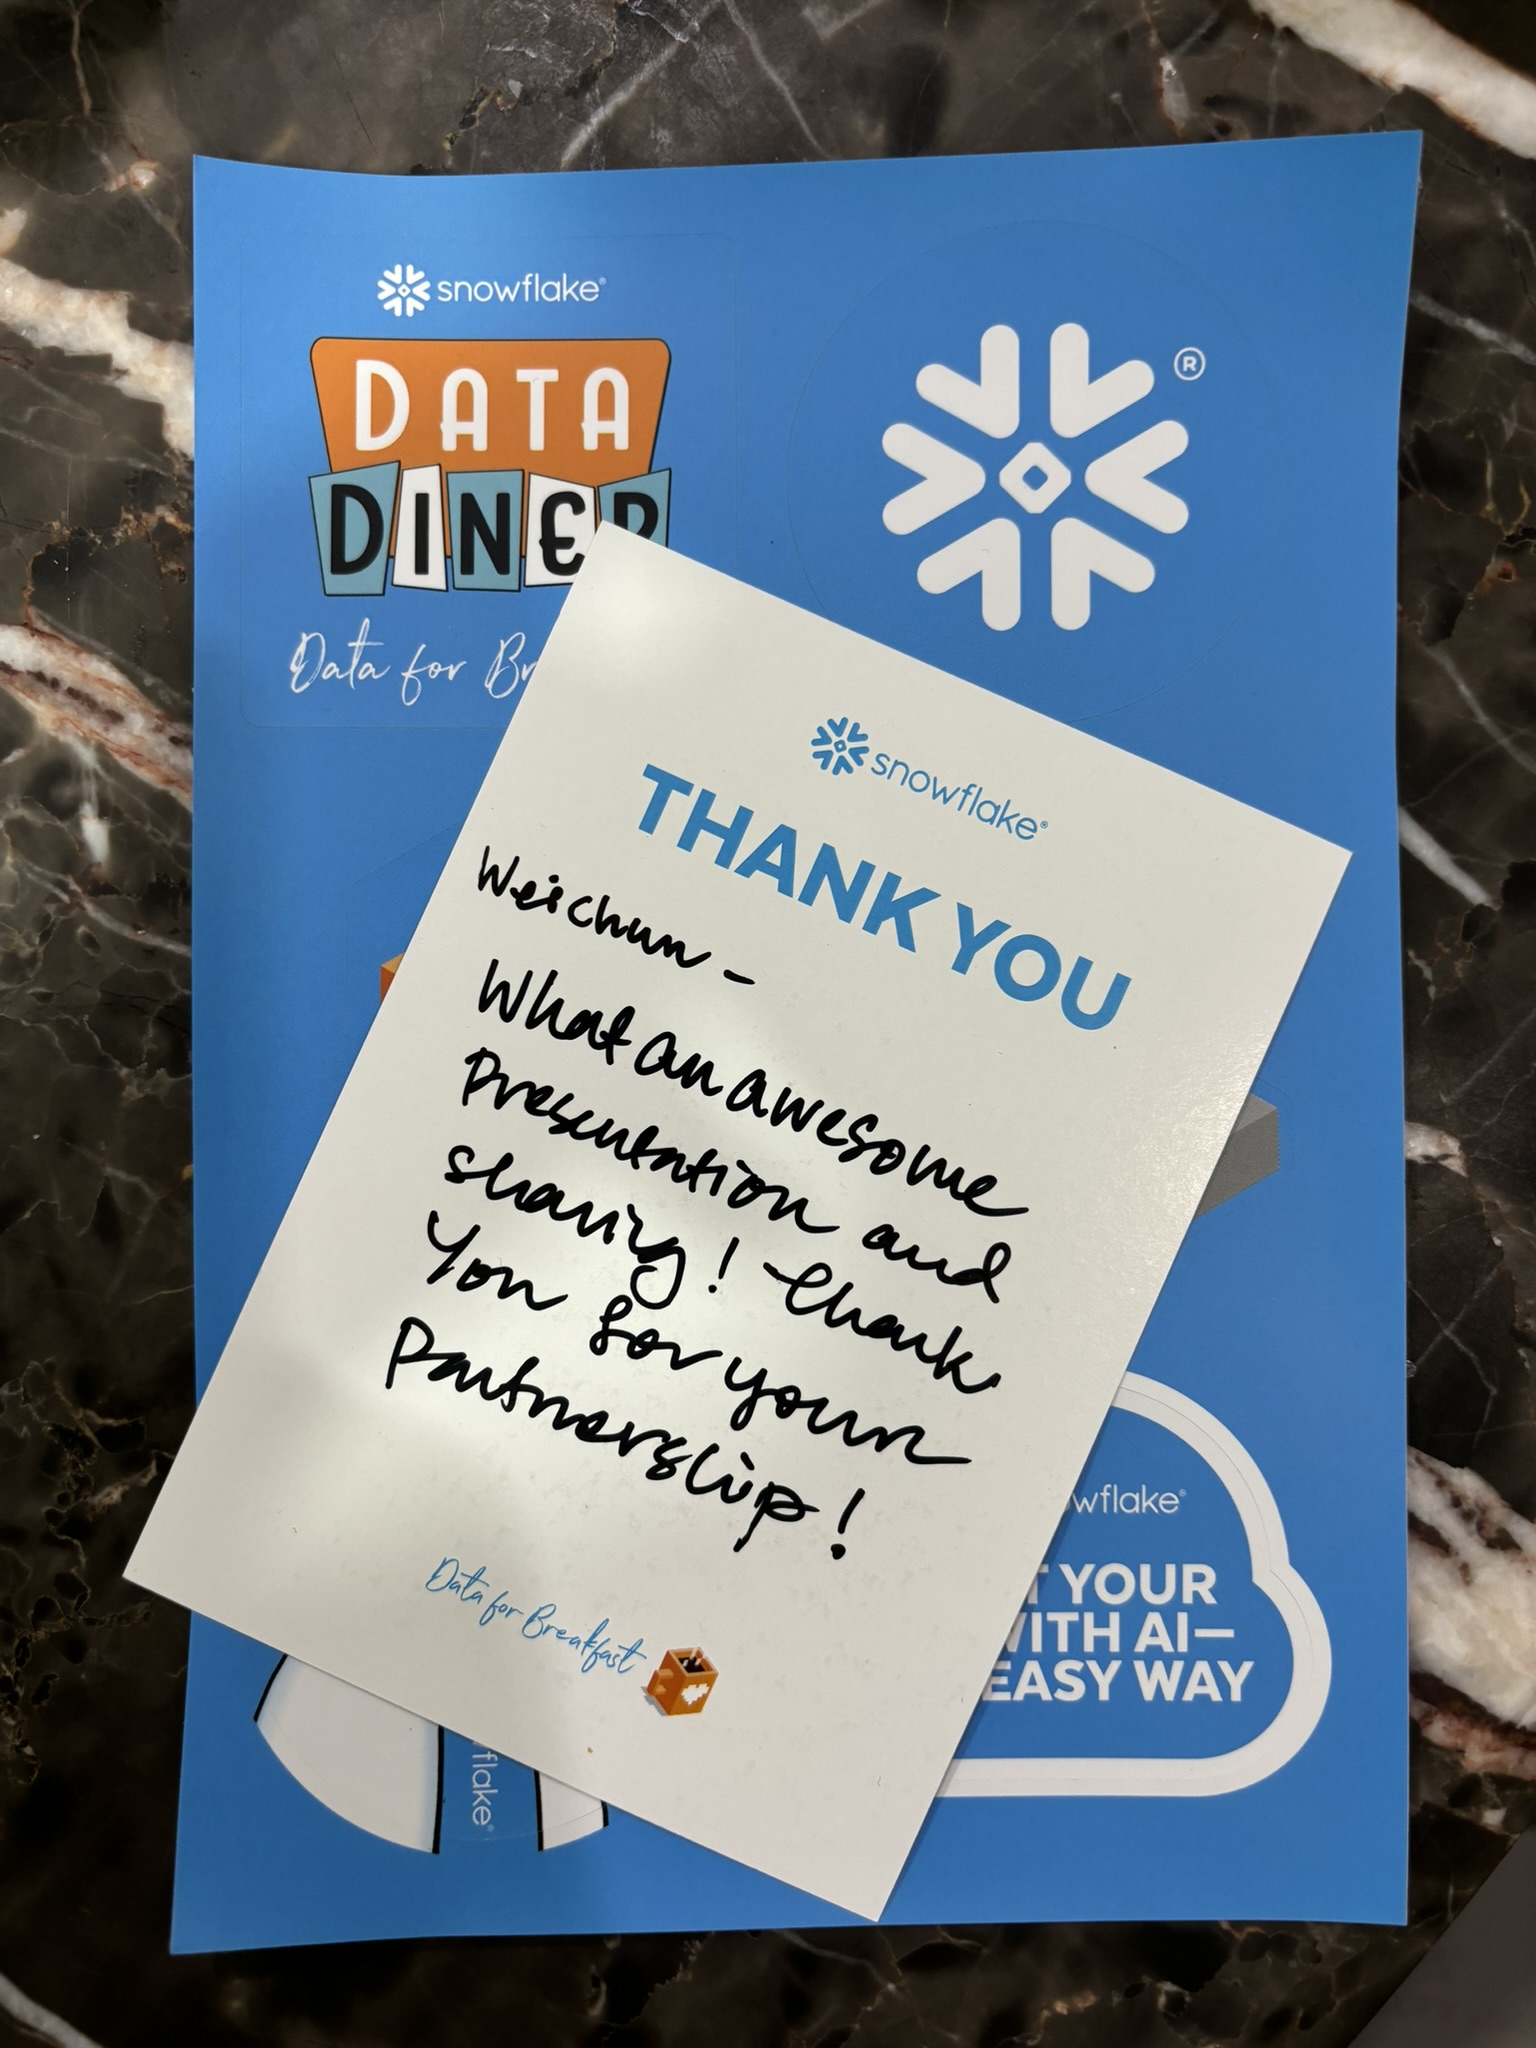 snowflake®
DATA
DINER
Data for Br
®
snowflake®
THANK YOU
Weichun -
What an awesome
Presentation and
sharing! Thank
You for your
Partnership!
Data for Breakfast
wflake®
T YOUR
WITH AI—
EASY WAY
flake®